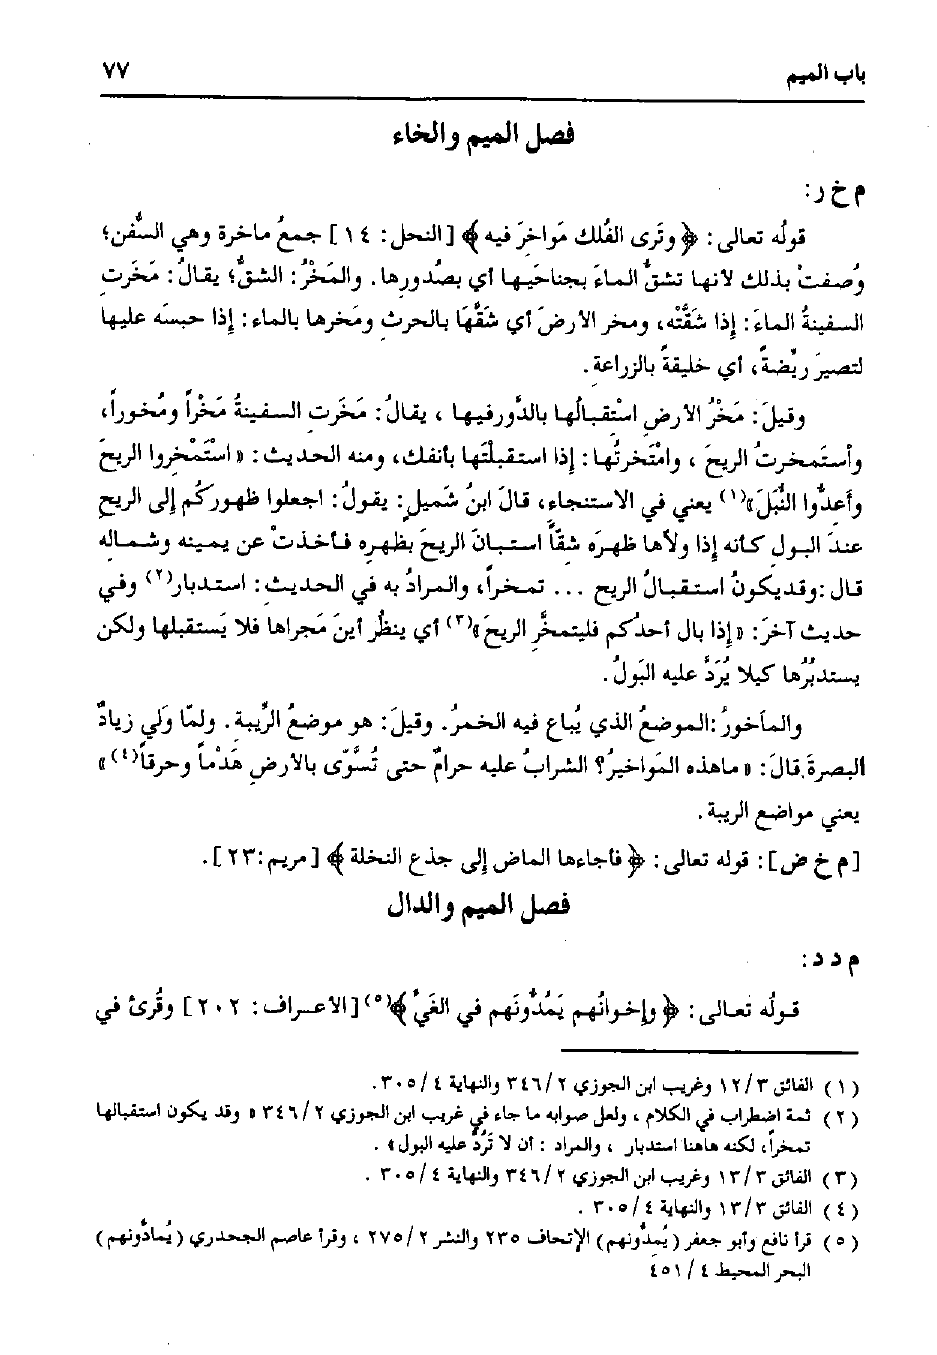 باب الميم ٧٧
فصل الميم والخاء
م خ ر:
قولُه تعالى: ﴿ وتَرى الفُلك مَواخِرَ فيه ﴾ [النحل: ١٤] جمعُ ماخرة وهي السُّفن؛
وُصفتْ بذلك لأنها تشقُّ الماءَ بجناحَيها أي بصُدورها. والمَخْرُ: الشقُّ؛ يقالُ: مَخَرت
السفينةُ الماءَ: إِذا شَقَّتْه، ومخر الأرضَ أي شقَّها بالحرث ومَخرها بالماء: إِذا حبسَه عليها
لتصيرَ ريِّضةً، أي خليقةً بالزراعة.
وقيلَ: مَخْرُ الأرضِ اسْتقبالُها بالدَّورفيها ، يقالُ: مَخَرَت السفينةُ مَخْراً ومُخوراً،
وأستمخرتُ الريحَ ، وامْتَخرتُها: إِذا استقبلْتَها بأنفك، ومنه الحديث: « اسْتَمْخروا الريحَ
وأَعدُّوا النُّبَلَ»(١) يعني في الاستنجاء، قالَ ابنُ شميلٍ: يقولُ: اجعلوا ظهوركُم إلى الريحِ
عندَ البول كأنه إِذا ولاها ظهرَه شقاًّ استبانَ الريحَ بظهره فأخذتْ عن يمينه وشماله
قال :وقديكونُ استقبالُ الريح ... تمخراً، والمرادُ به في الحديث: استدبار(٢) وفي
حديث آخرَ: «إِذا بال أحدُكم فليتمخَّرِ الريحَ»(٣) أي ينظُر أينَ مَجراها فلا يَستقبلها ولكن
يستدبُرُها كيلا يُرَدَّ عليه البَولُ.
والمأخورُ :الموضعُ الذي يُباع فيه الخمرُ. وقيلَ: هو موضعُ الرِّيبة. ولمّا وَلي زيادٌ
البصرةَ قالَ: «ماهذه المَواخيرُ؟ الشرابُ عليه حرامٌ حتى تُسَوَّى بالأرضِ هَدْماً وحرقاً(٤)»
يعني مواضع الريبة.
[م خ ض]: قوله تعالى: ﴿ فأجاءها المخاض إلى جذع النخلة ﴾ [مريم:٢٣].
فصل الميم والدال
م د د:
قولُه تعالى: ﴿ وإِخوانُهم يَمُدُّونَهم في الغَيِّ﴾(٥)[الأعراف: ٢٠٢] وقُرئ في
(١) الفائق ١٢/٣ وغريب ابن الجوزي ٣٤٦/٢ والنهاية ٣٠٥/٤.
(٢) ثمة اضطراب في الكلام ، ولعل صوابه ما جاء في غريب ابن الجوزي ٣٤٦/٢ « وقد يكون استقبالها
تمخراً، لكنه هاهنا استدبار ، والمراد : أن لا تَرُدَّ عليه البول» .
(٣) الفائق ١٣/٣ وغريب ابن الجوزي ٣٤٦/٢ والنهاية ٣٠٥/٤ .
(٤) الفائق ١٣/٣ والنهاية ٣٠٥/٤ .
(٥) قرأ نافع وأبو جعفر (يُمدُّونهم) الإتحاف ٢٣٥ والنشر ٢٧٥/٢ ، وقرأ عاصم الجحدري (يُمادُّونهم)
البحر المحيط ٤٥١/٤